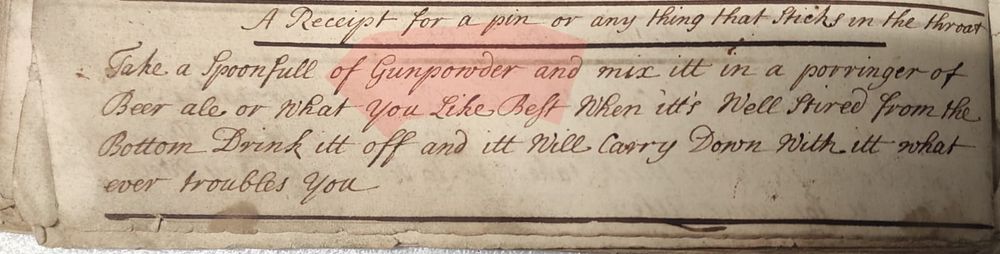 A Receipt for a pin or any thing that Sticks in the throat
Take a Spoonfull of Gunpowder and mix itt in a porringer of
Beer ale or What You Like Best When itt's Well Stired from the
Bottom Drink itt off and itt Will Carry Down With itt what
ever troubles You